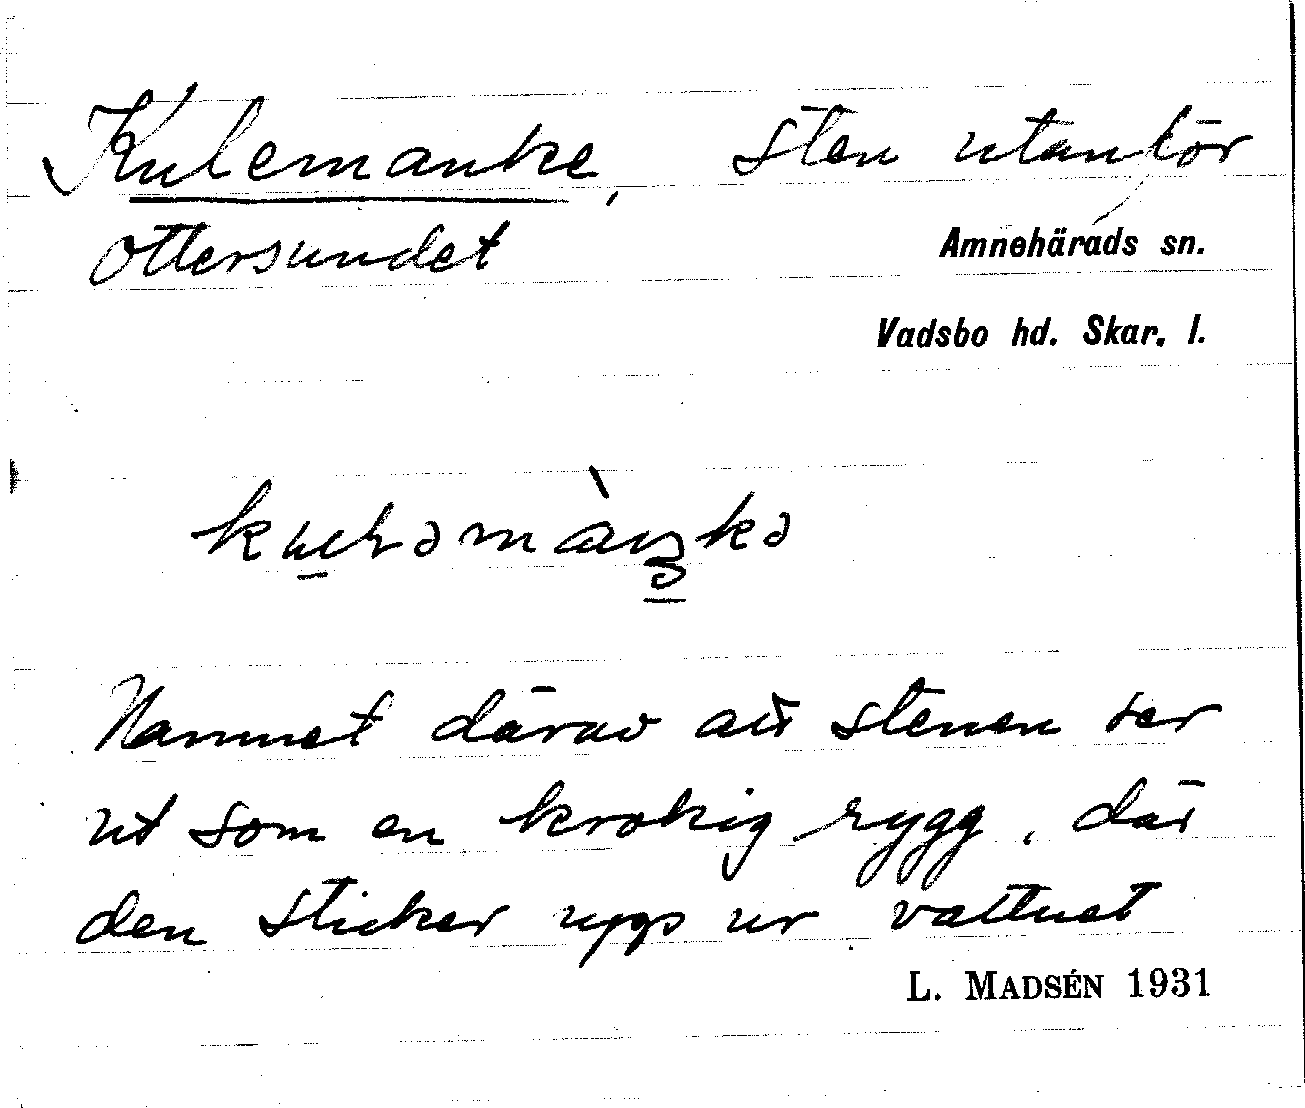 Kulemanke, sten utanför
Ottersundet
Amnehärads sn.
Vadsbo hd. Skar. l.
Namnet därav att stenen ser
ut som en krokig rygg, där
den sticker upp ur vattnet
L. MADSÉN 1931